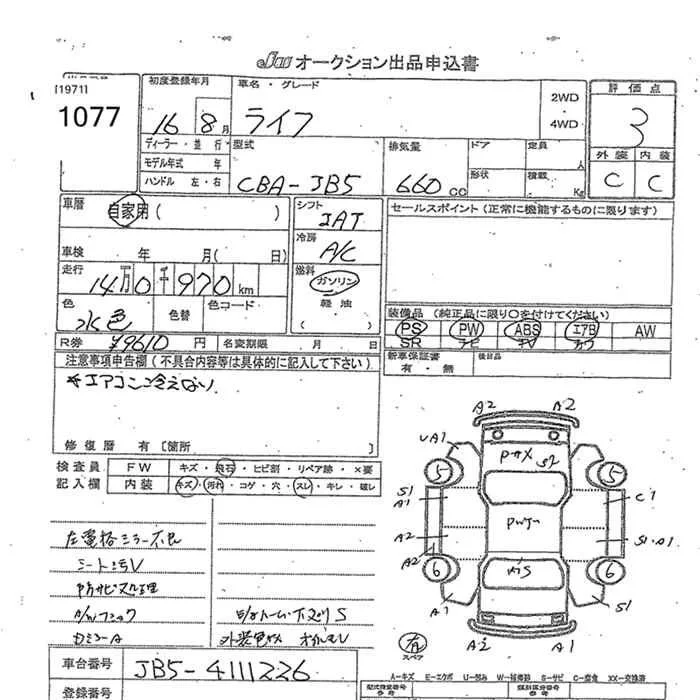 JU オークション出品申込書
[1971]
1077
初度登録年月
16 8月
車名・グレード
ライフ
2WD
・
4WD
評価点
3
外装 内装
C C
ディーラー・並行
モデル年式 年
ハンドル 左・右
型式
CBA-JB5
排気量
660 CC
ドア
形状
定員
人
積載
Kg
車歴
自家用 ( )
シフト
IAT
冷房
A/C
燃料
ガソリン
・
軽油
セールスポイント (正常に機能するものに限ります)
車検 年 月( 日)
走行
14万0千970km
色
水色
色替
色コード
装備品 (純正品に限り○を付けてください)
PS PW ABS エアB AW
SR ナビ TV カワ
R券 ¥9610 円
名変期限 月( 日)
新車保証書
有・無
後日品
注意事項申告欄 (不具合内容等は具体的に記入して下さい)
*エアコン冷えない
修復歴 有 [箇所 ]
検査員
記入欄
FW キズ・飛石・ヒビ割・リペア跡・×要
内装 キズ・汚れ・コゲ・穴・スレ・キレ・破レ
左電格ミラー不良
A2 A2
UA1
S2
5 5
S1
A1
C1
A2
A2
S1・A1
6 6
A1
S1
A2 A1
有
スペア
車台番号
JB5-4111226
登録番号
A=キズ E=エクボ U=凹み W=補修跡 S=サビ C=腐食 XX=交換済
型式指定番号
類別区分番号